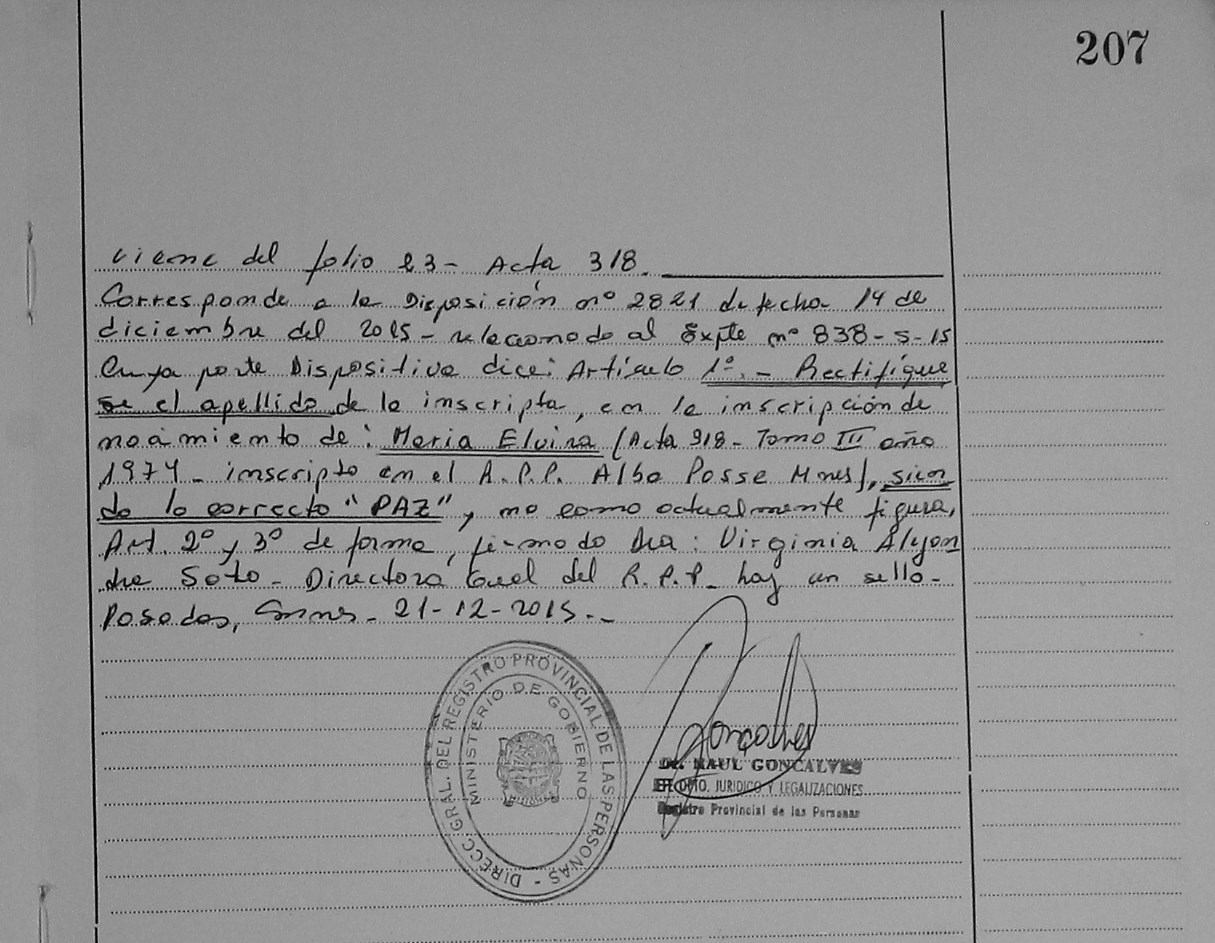 207
viene del folio 23 - Acta 318.
Corresponde a la Disposición nº 2821 de fecha 14 de
diciembre del 2015 - relacionado al Expte nº 838-S-15
Cuya parte Dispositiva dice: Artículo 1º.- Rectifíque
se el apellido de la inscripta, en la inscripción de
nacimiento de: Maria Elvira (Acta 318 - Tomo III año
1974 - inscripto en el R.P.P. Alba Posse Mnes), sien
do lo correcto "PAZ", no como actualmente figura,
Art. 2º y 3º de forma, firmado Dra: Virginia
Soto - Directora Gral del R.P.P - hay un sello -
Posadas, Mnes - 21-12-2015.-
DIRECC. GRAL. DEL REGISTRO PROVINCIAL DE LAS PERSONAS -
MINISTERIO DE GOBIERNO
Goncalves
Dr. RAUL GONCALVES
DPTO. JURIDICO Y LEGALIZACIONES
Registro Provincial de las Personas